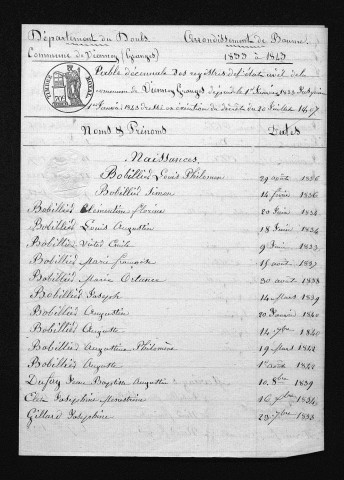 Département du Doubs Arrondissement de Baume
Commune de Vienney (Granges) 1833 à 1843
Table décennale des registres de l'état civil de la
commune de Vienney Granges depuis le 1er Janvier 1833 jusqu'au
1er Janvier 1843 dressée en exécution du décret du 20 Juillet 1807
Noms & Prénoms Dates
Naissances
Bobillier Louis Philemon 29 août 1836
Bobillier Simon 14 février 1836
Bobillier Clémentine Florine 20 Juin 1834
Bobillier Louis Augustin 18 Juin 1834
Bobillier Cécile 9 Juin 1833
Bobillier Marie françoise 15 août 1837
Bobillier Marie 30 août 1838
Bobillier Joseph 14 Mars 1839
Bobillier Augustin 20 Janvier 1840
Bobillier Auguste 14 7bre 1840
Bobillier Augustine Philomène 19 Mars 1842
Bobillier Auguste 1er août 1842
Dufay Jean Baptiste Augustin 10 8bre 1839
Joséphine 16 7bre 1834
Gillard Joséphine 23 7bre 1833